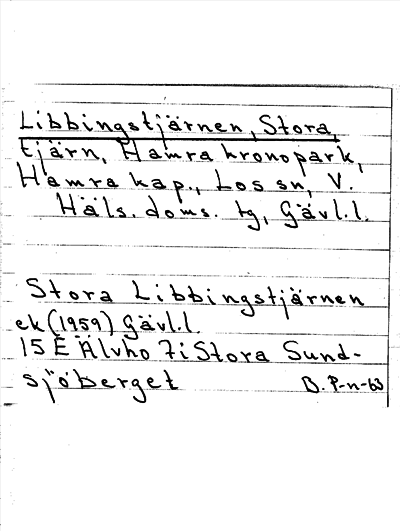 Libbingstjärnen, Stora,
tjärn, Hamra kronopark,
Hamra kap., Los sn, V.
Häls. doms. tg, Gävl.l.
Stora Libbingstjärnen
ek (1959) Gävl.l.
15 E Älvho 7i Stora Sund-
sjöberget B. P-n-63